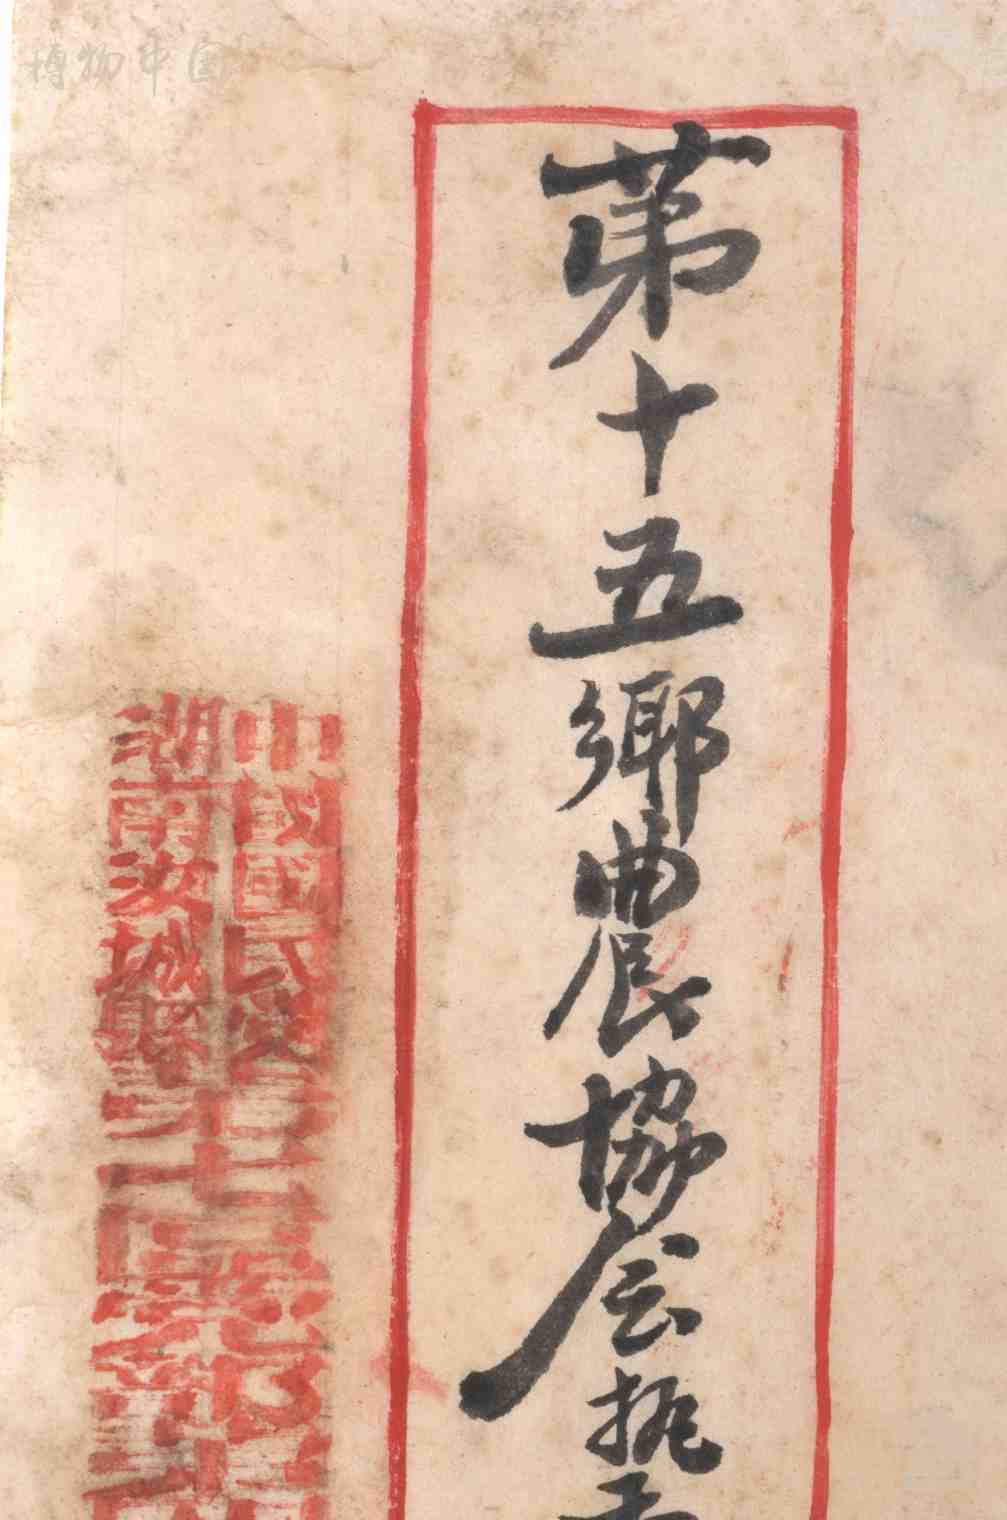 博物中国
第十五鄉農協会执
中國國民黨
湖南汝城縣
十七區